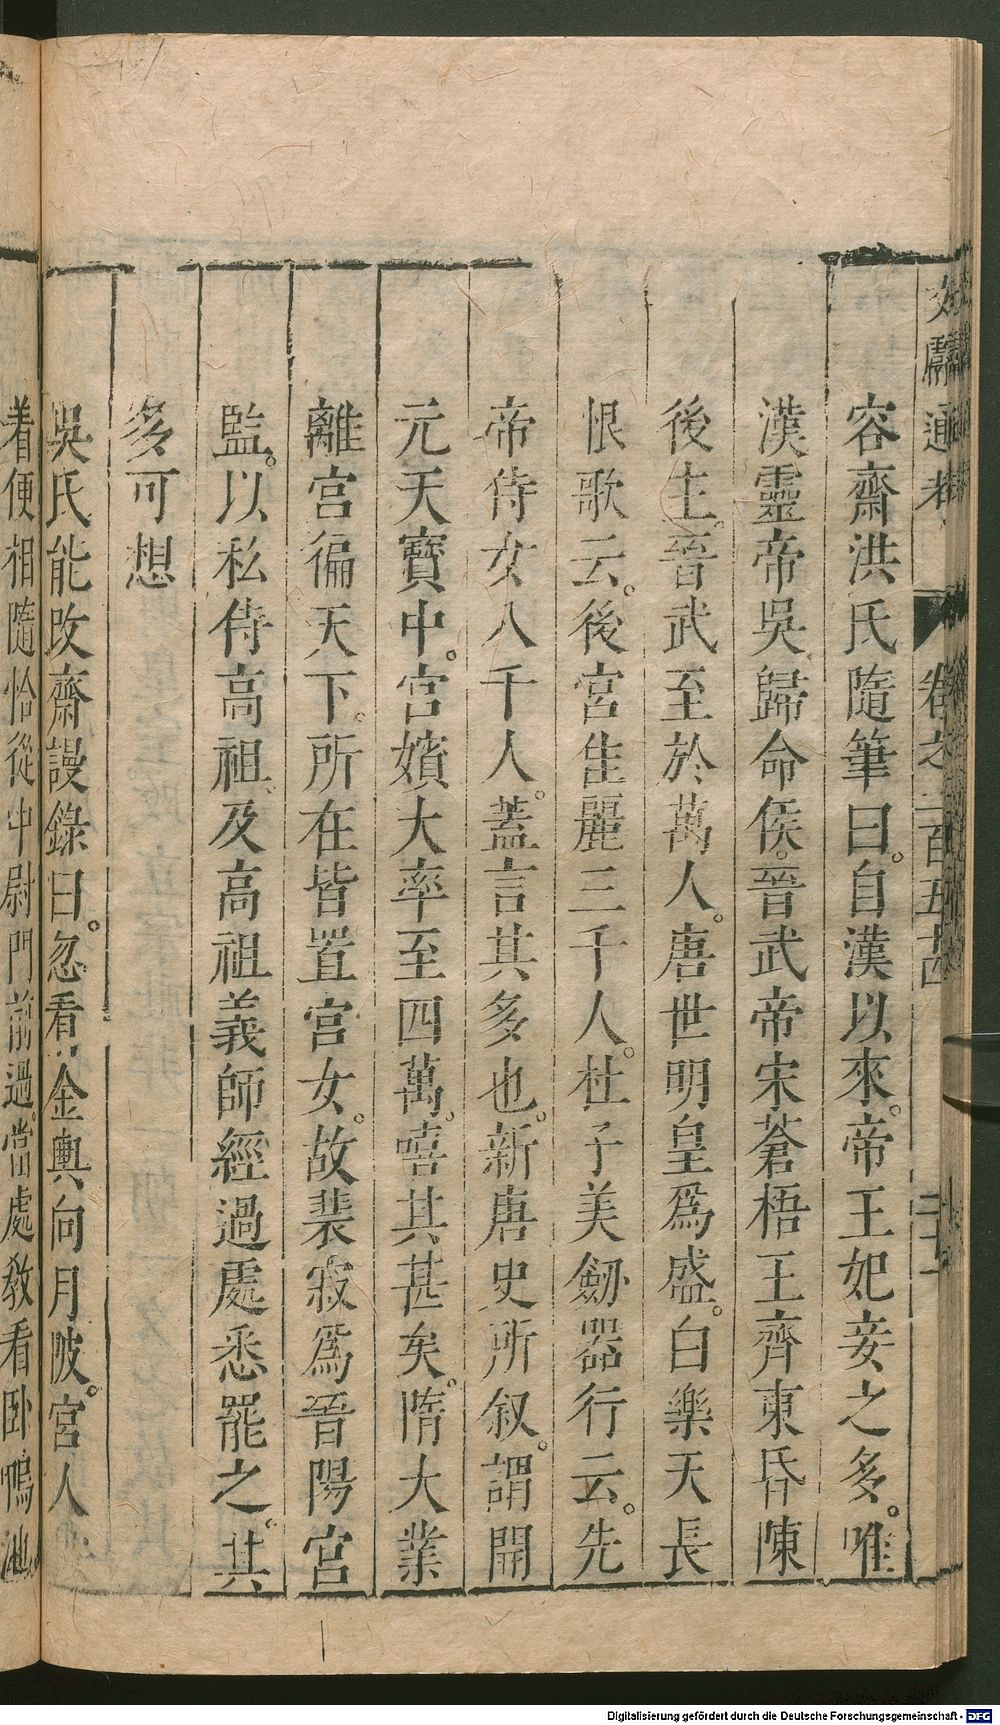 文獻通考 卷之二百五十四
容齋洪氏隨筆曰。自漢以來。帝王妃妾之多。唯
漢靈帝吳歸命侯。晉武帝宋蒼梧王齊東昏陳
後主。晉武至於萬人。唐世明皇爲盛。白樂天長
恨歌云。後宮佳麗三千人。杜子美劒器行云。先
帝侍女八千人。蓋言其多也。新唐史所叙。謂開
元天寶中。宮嬪大率至四萬。嘻其甚矣。隋大業
離宮徧天下。所在皆置宮女。故裴寂爲晉陽宮
監。以私侍高祖。及高祖義師經過處悉罷之。其
多可想
吳氏能改齋謾錄曰。忽看金輿向月陂。宮人
着便相隨恰從中尉門前過。當處敎看卧鴨池
Digitalisierung gefördert durch die Deutsche Forschungsgemeinschaft - DFG